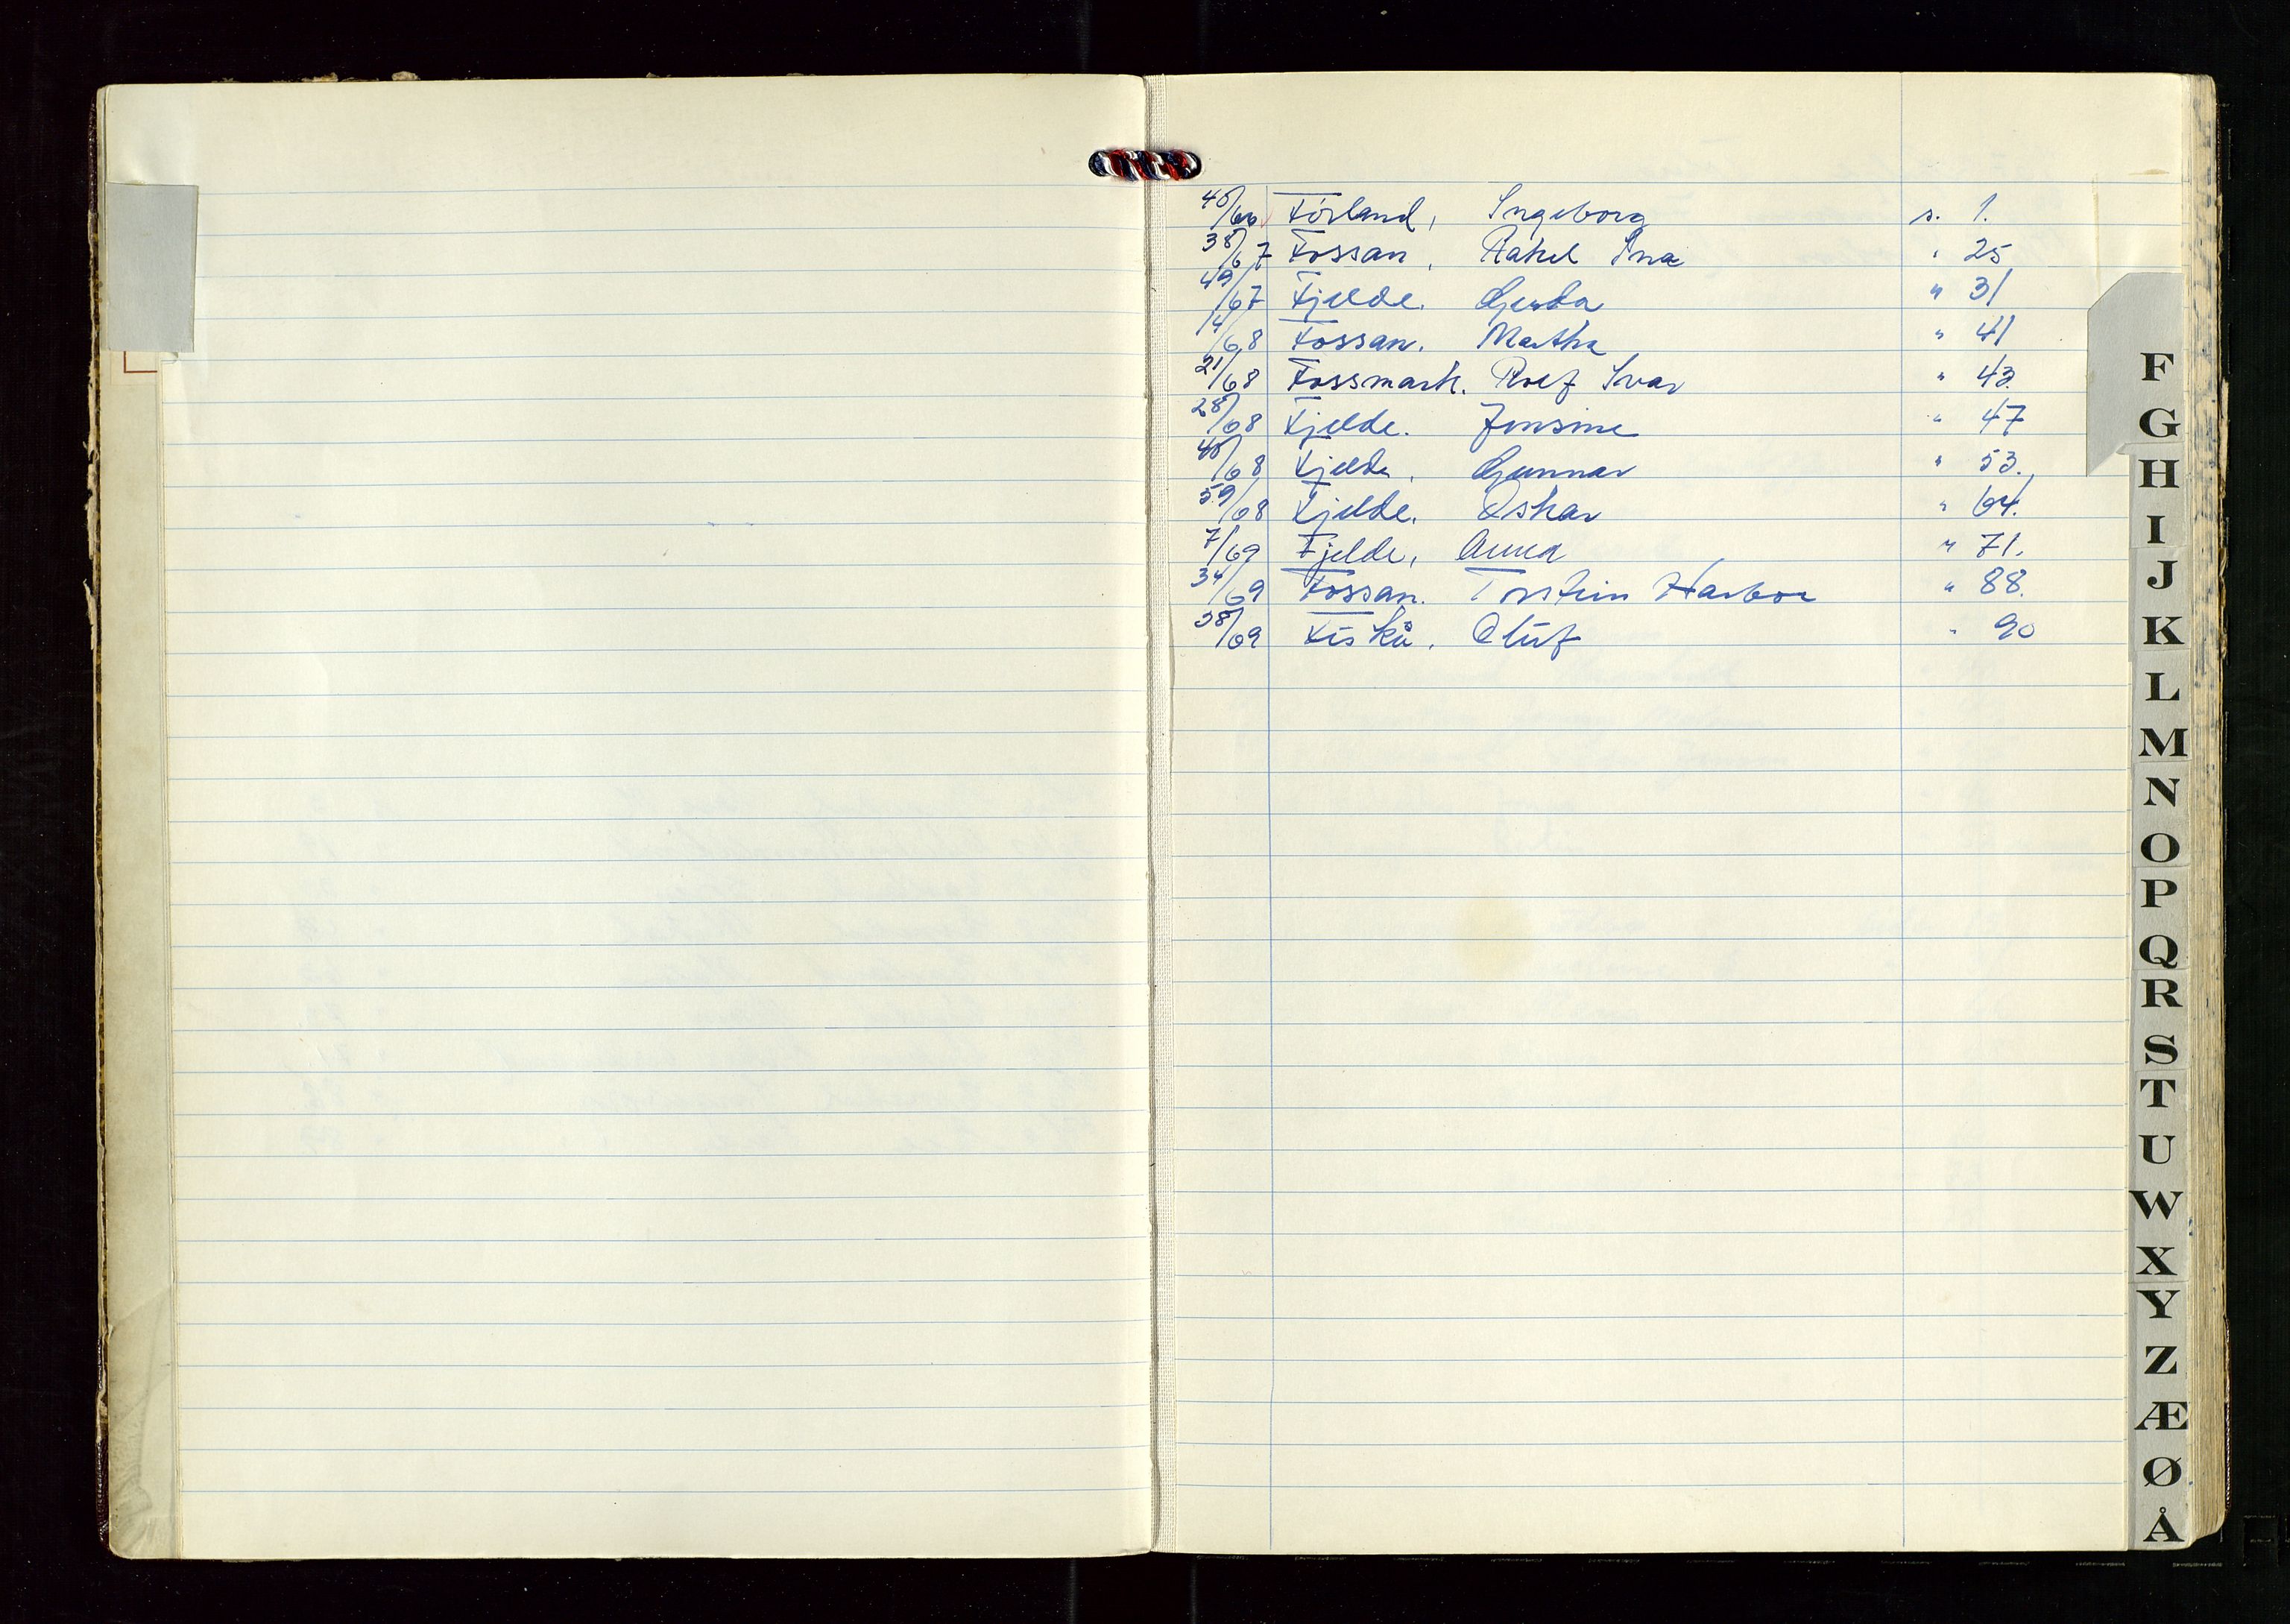 45/66 Förland, Ingeborg s. 1.
38/67 Fossan, Rakel Ina " 25
49/67 Fjelde. Gerda " 31
14/68 Fossan. Martha " 41
21/68 Fossmark. Rolf Ivar " 43.
28/68 Fjelde. Jensine " 47
40/68 Fjelde, Gunnar " 53.
59/68 Fjelde. Oskar " 64.
7/69 Fjelde, Anna " 71.
34/69 Fossan. Torstein Harboe " 88.
38/69 Fiskå, Oluf " 90
F
G
H
I
J
K
L
M
N
O
P
Q
R
S
T
U
W
X
Y
Z
Æ
Ø
Å